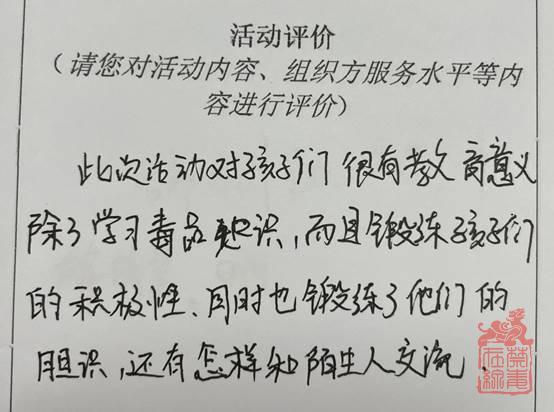 活动评价
（请您对活动内容、组织方服务水平等内
容进行评价）
此次活动对孩子们很有教育意义
除了学习毒品知识，而且锻炼孩子们
的积极性、同时也锻练了他们的
胆识，还有怎样和陌生人交流.